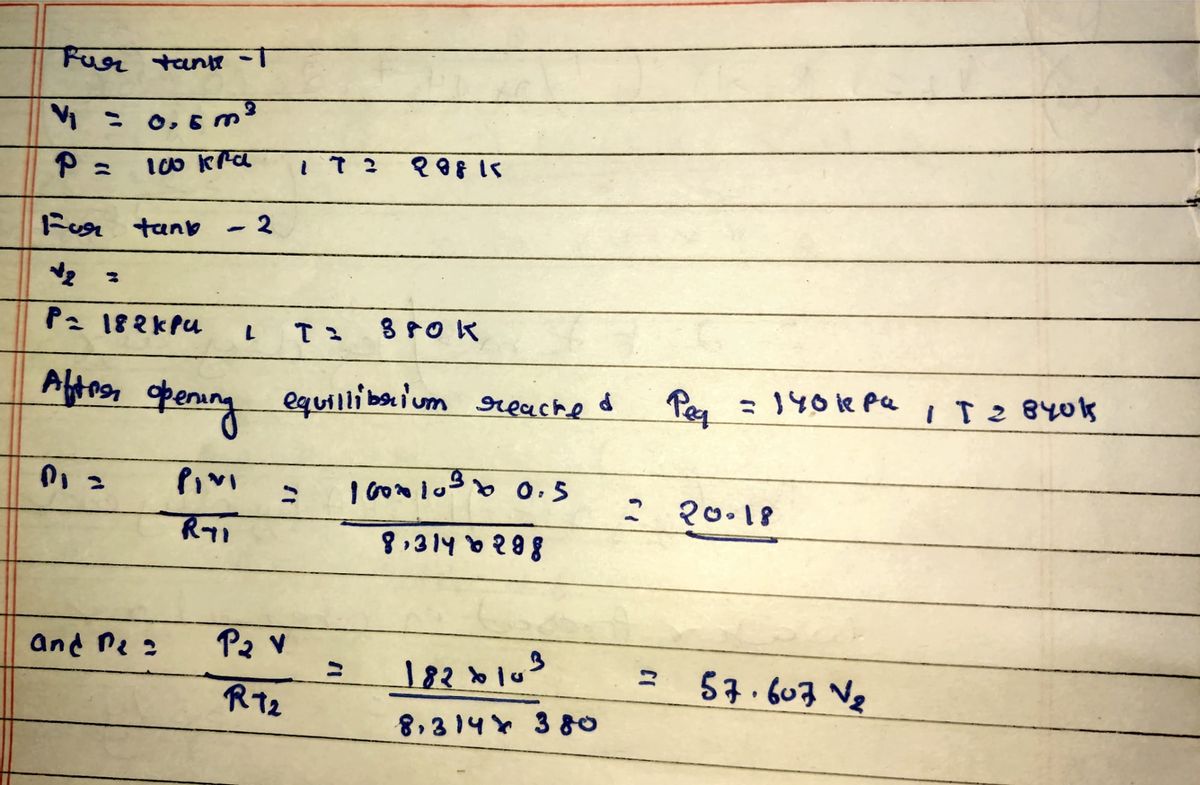 For tank -1
V1 = 0.5 m³
P = 100 kPa , T = 298 K
For tank - 2
V2 =
P = 182 kPa , T = 380 K
After opening equillibrium reached Peq = 140 kPa , T = 340k
n1 = P1V1 / RT1 = 100×10³ × 0.5 / 8.314 × 298 = 20.18
and n2 = P2 V / RT2 = 182 × 10³ / 8.314 × 380 = 57.607 V2